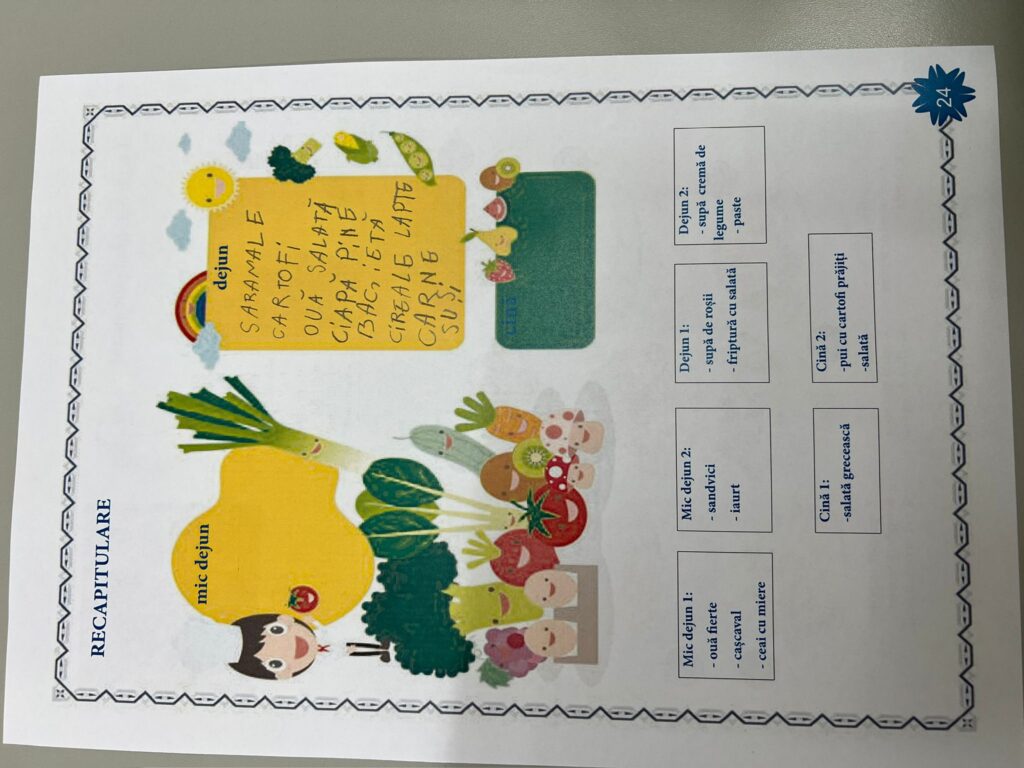 RECAPITULARE
mic dejun
dejun
SARAMALE
CARTOFI
OUĂ SALATĂ
CIAPĂ PÍNE
BAC,IETĂ
CIREALE LAPTE
CARNE
SUȘI
cină
Mic dejun 1:
- ouă fierte
- cașcaval
- ceai cu miere
Mic dejun 2:
- sandvici
- iaurt
Dejun 1:
- supă de roșii
- friptură cu salată
Dejun 2:
- supă cremă de
legume
- paste
Cină 1:
-salată grecească
Cină 2:
-pui cu cartofi prăjiți
-salată
24